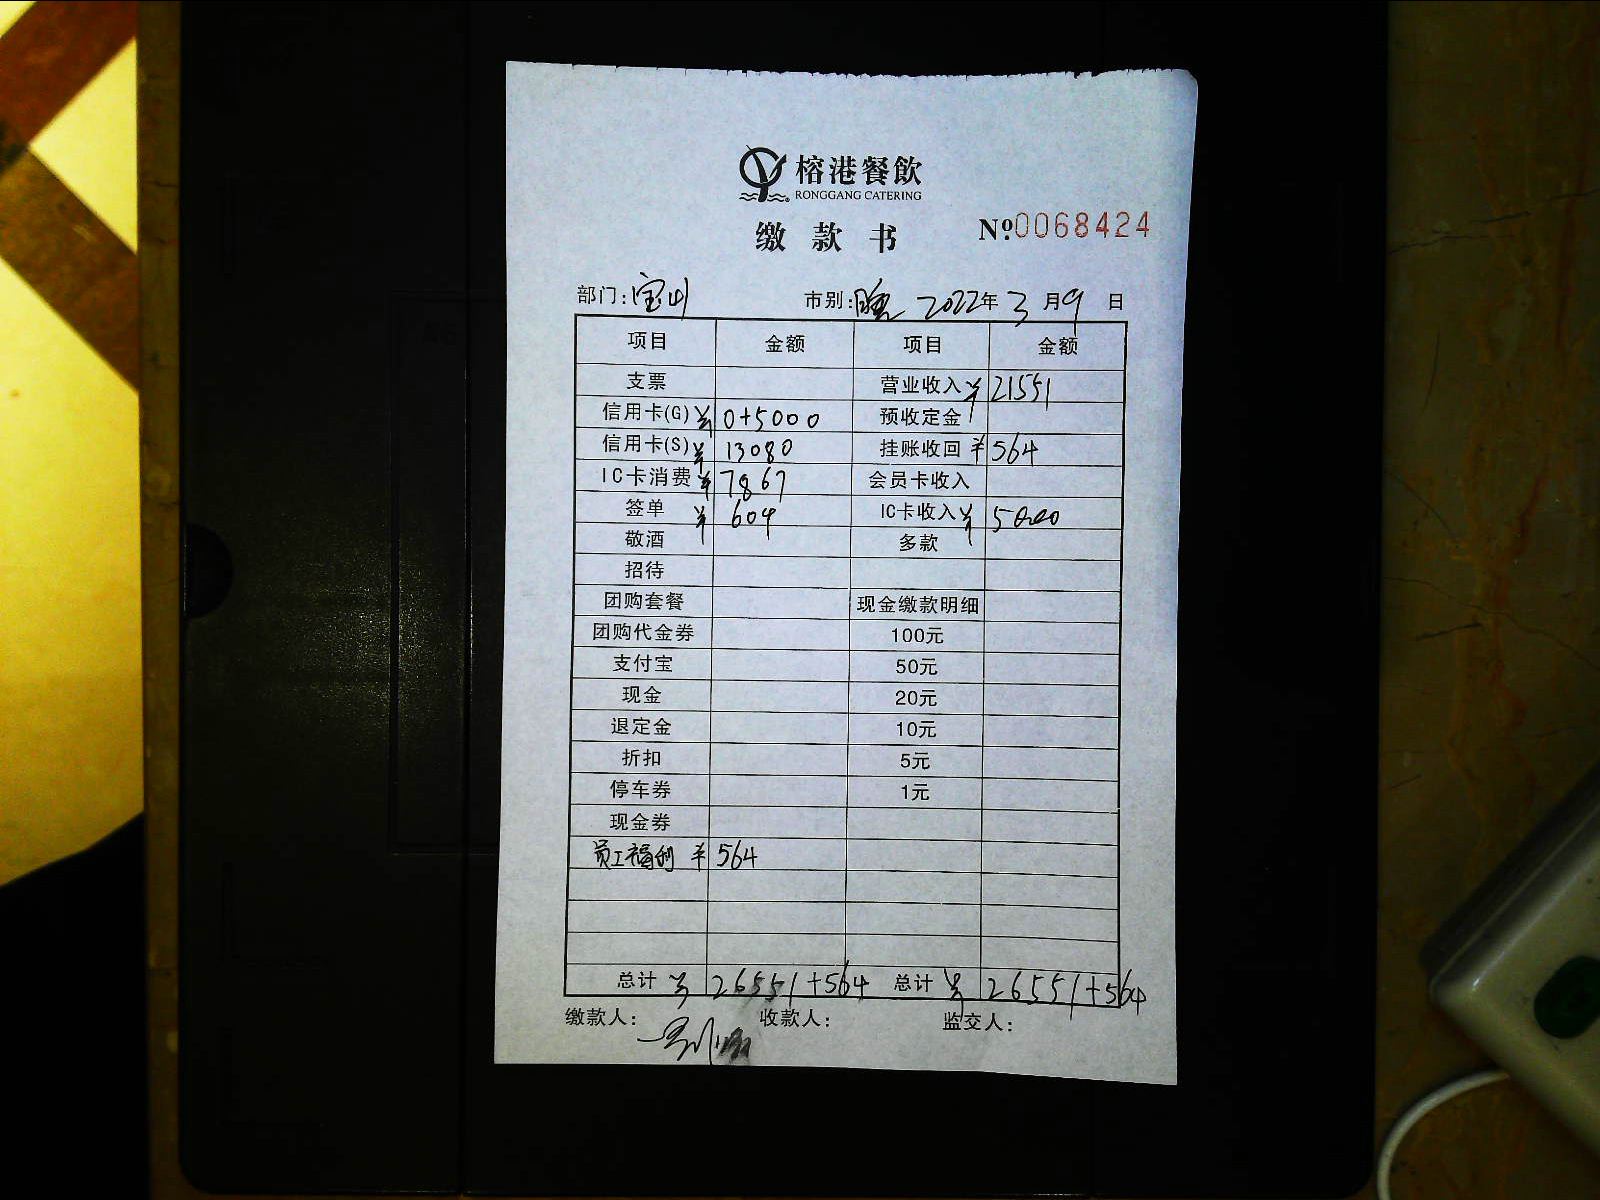 榕港餐飲
RONGGANG CATERING
缴款书 №0068424
部门:宝山 市别:晚 2022年3月9日
项目 金额 项目 金额
支票 营业收入 ¥21551
信用卡(G) ¥0+5000 预收定金
信用卡(S) ¥13080 挂账收回 ¥564
IC卡消费 ¥7867 会员卡收入
签单 ¥604 IC卡收入 ¥5000
敬酒 多款
招待
团购套餐 现金缴款明细
团购代金券 100元
支付宝 50元
现金 20元
退定金 10元
折扣 5元
停车券 1元
现金券
员工福利 ¥564
总计 ¥26551+564 总计 ¥26551+564
缴款人: 收款人: 监交人: